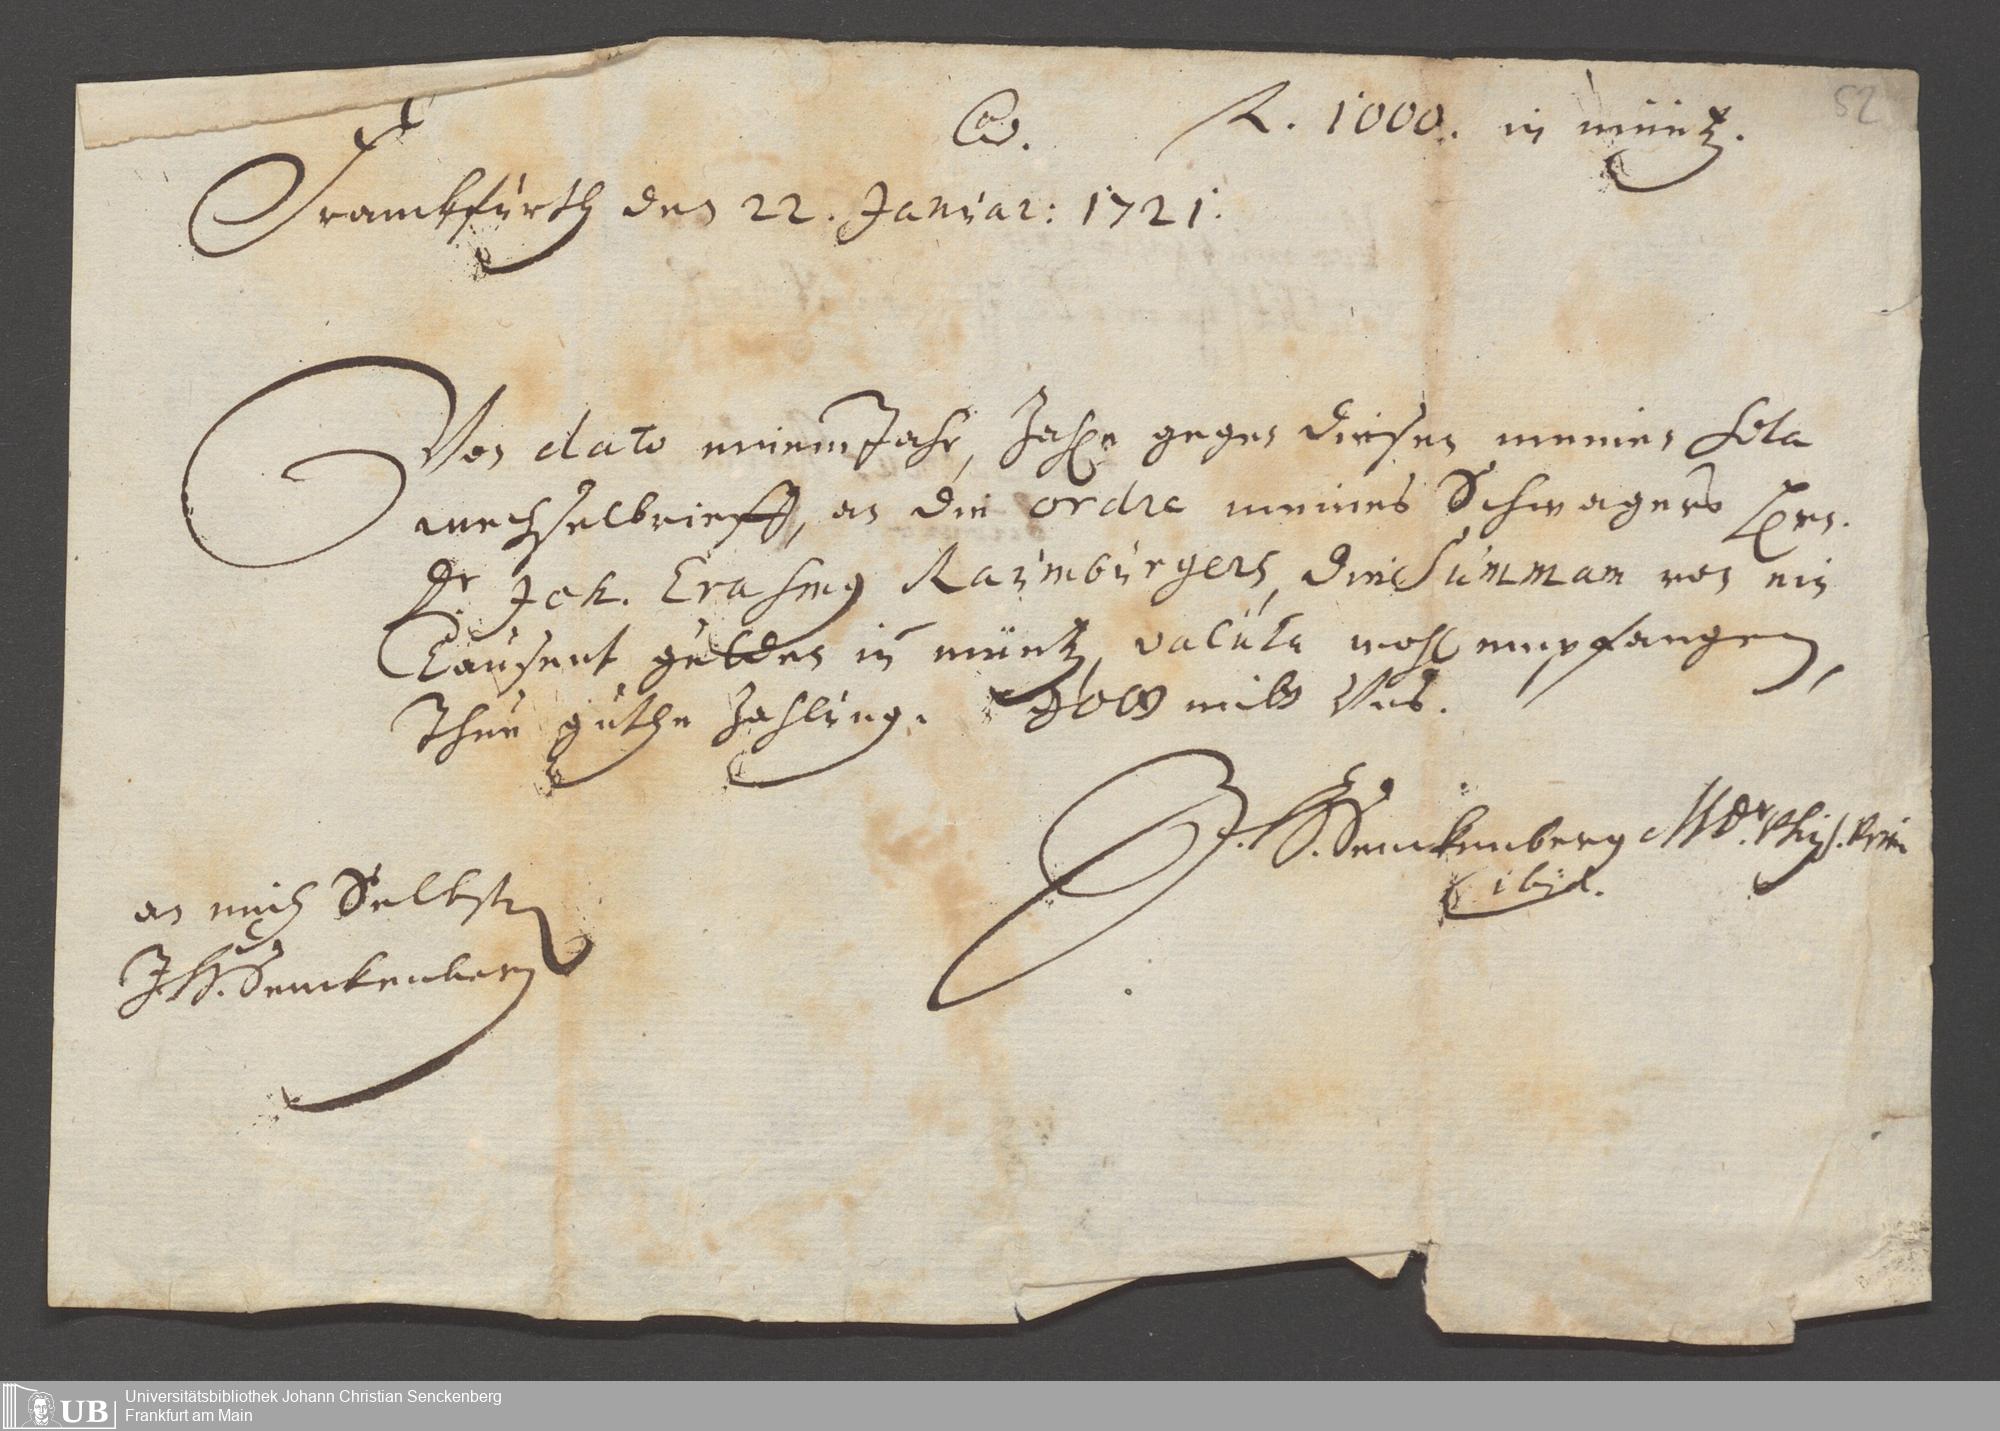 52
fl. 1000. in müntz.
Franckfürth den 22. Januar: 1721.
Von dato einem Jahr, Zahle gegen diesen meinen Sola
wechselbrieff, an die ordre meines Schwagers Hrn.
Dr Joh. Erasmy Raümbürgers, die Summam von ein
Tausent gülden in müntz, valüta wohl empfangen,
Thue güthe Zahlüng. Gott mitt Uns.
J. H. Senckenberg MDr. Phys. Prim
an mich Selbst
J. H. Senckenberg
UB
Universitätsbibliothek Johann Christian Senckenberg
Frankfurt am Main